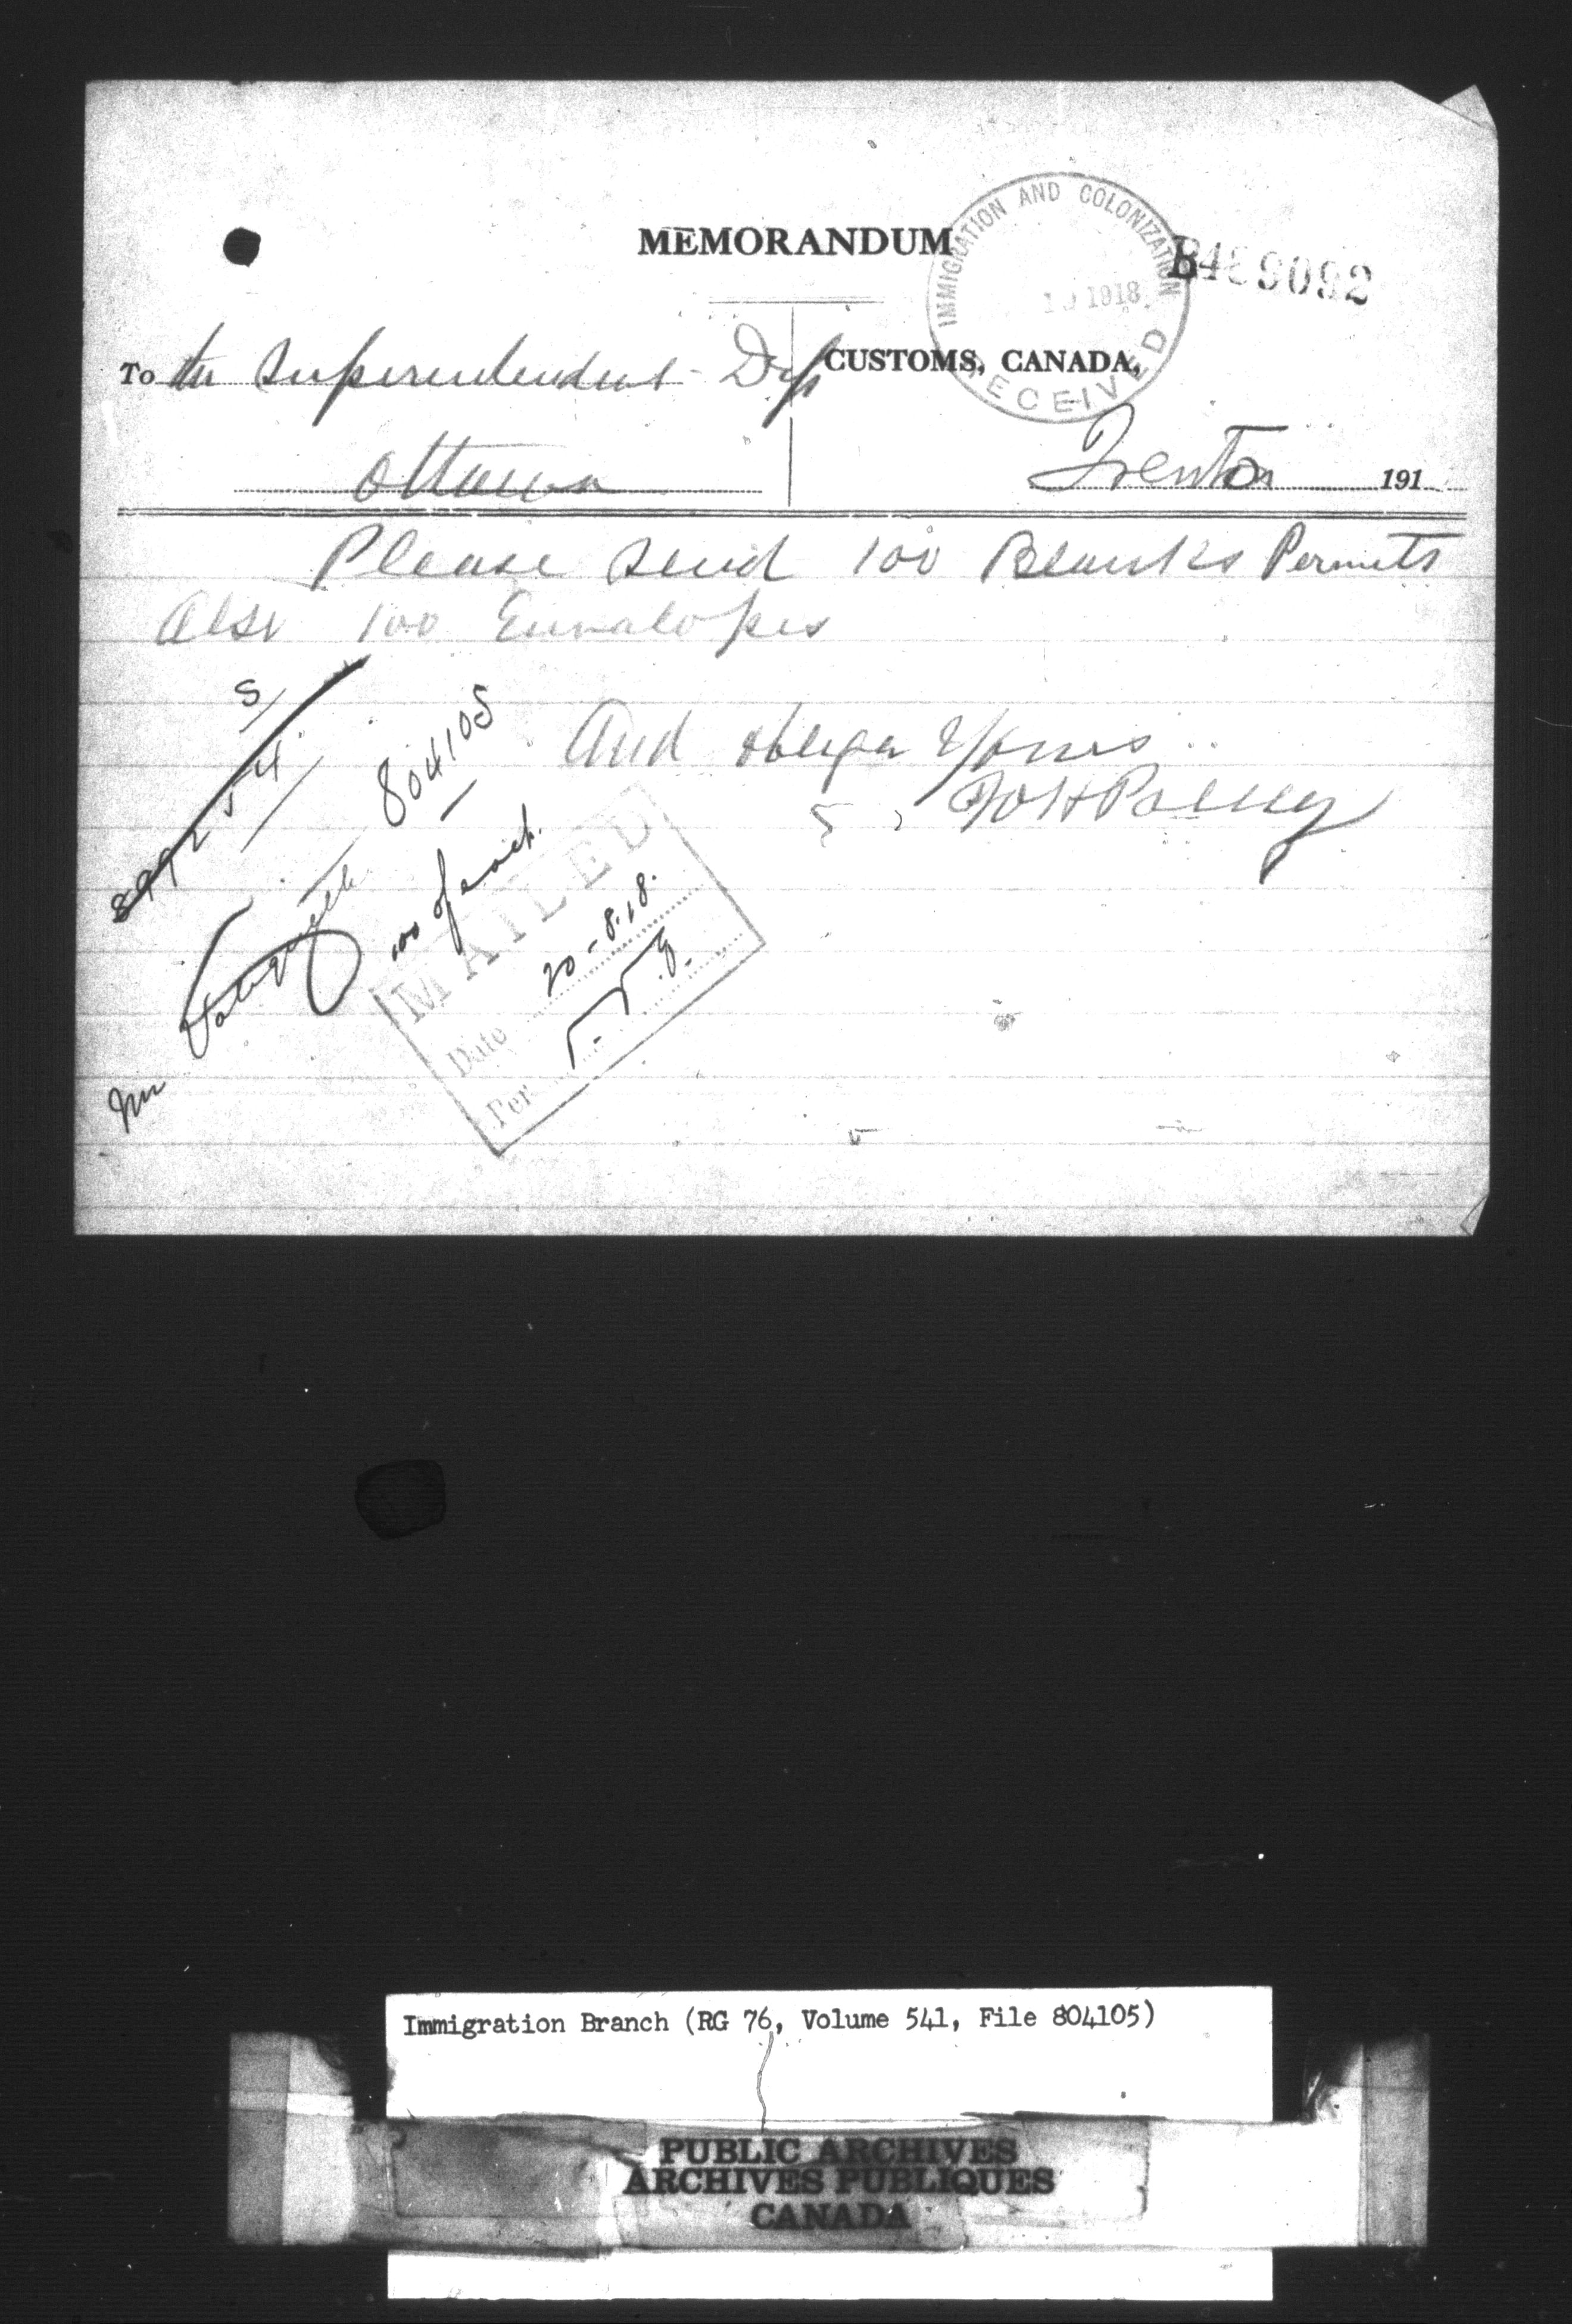 MEMORANDUM
IMMIGRATION AND COLONIZATION
1918
RECEIVED
To the Superintendent Dep
CUSTOMS, CANADA,
Ottawa
Trenton 191
Please send 100 Blanks Permits
Also 100 Envalopes
And oblige Yours
S
804105
100 of each.
MAILED
Date 20-8-18.
Per
Mr
Immigration Branch (RG 76, Volume 541, File 804105)
PUBLIC ARCHIVES
ARCHIVES PUBLIQUES
CANADA